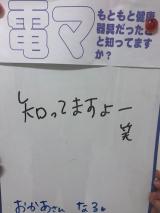 電マ
もともと健康
器具だったこ
と知ってます
か？
知ってますよー
笑
おかあさん なるo